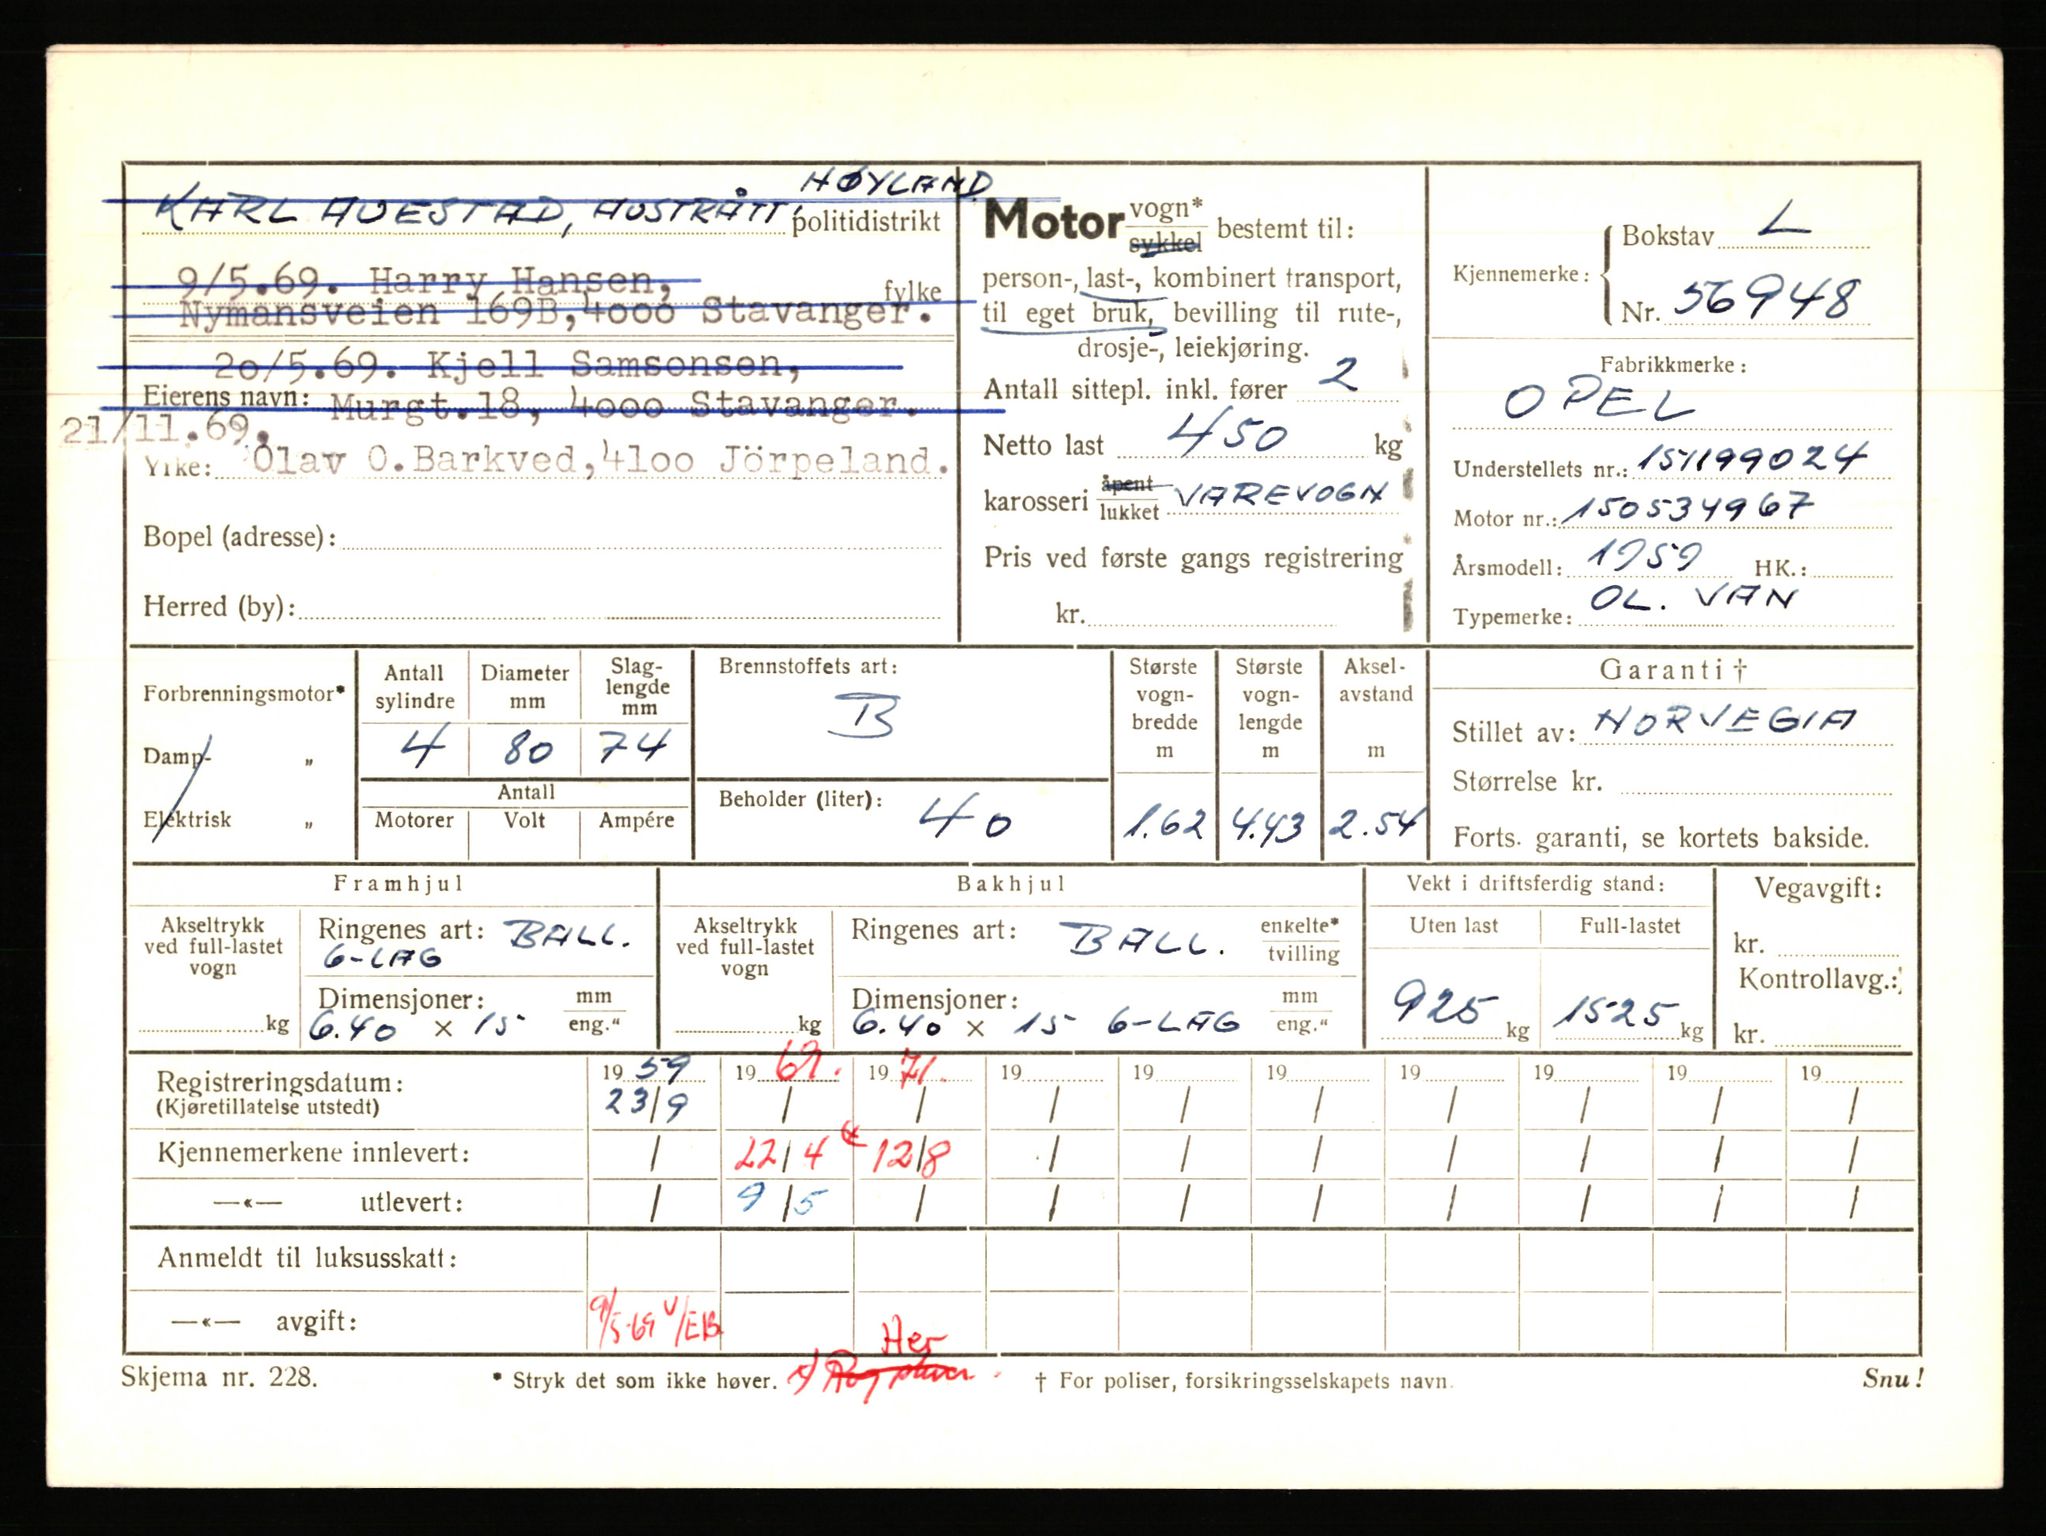 HØYLAND.
KARL AUESTAD, AUSTRÅTT, politidistrikt
9/5.69. Harry Hansen,
fylke
Nymansveien 169B, 4000 Stavanger.
20/5.69. Kjell Samsonsen,
Eierens navn: Murgt.18, 4000 Stavanger.
21/11.69.
Yrke: Olav O.Barkved, 4100 Jörpeland.
Bopel (adresse):
Herred (by):
Motor vogn* sykkel bestemt til:
person-, last-, kombinert transport,
til eget bruk, bevilling til rute-,
drosje-, leiekjøring.
Antall sittepl. inkl. fører 2
Netto last 450 kg
karosseri åpent lukket VAREVOGN
Pris ved første gangs registrering
kr.
Kjennemerke: Bokstav L
Nr. 56948
Fabrikkmerke:
OPEL
Understellets nr.: 151199024
Motor nr.: 150534967
Årsmodell: 1959 HK.:
Typemerke: OL. VAN
Forbrenningsmotor*
Damp- „
Elektrisk „
Antall sylindre Diameter mm Slag-lengde mm
4 80 74
Antall
Motorer Volt Ampére
Brennstoffets art:
B
Beholder (liter): 40
Største vogn-bredde m 1.62
Største vogn-lengde m 4.43
Aksel-avstand m 2.54
Garanti †
Stillet av: NORVEGIA
Størrelse kr.
Forts. garanti, se kortets bakside.
Framhjul
Akseltrykk ved full-lastet vogn
kg
Ringenes art: BALL.
6-LAG
Dimensjoner: mm eng."
6.40 x 15
Bakhjul
Akseltrykk ved full-lastet vogn
kg
Ringenes art: BALL. enkelte* tvilling
Dimensjoner: mm eng."
6.40 x 15 6-LAG
Vekt i driftsferdig stand:
Uten last Full-lastet
925 kg 1525 kg
Vegavgift:
kr.
Kontrollavg.:
kr.
Registreringsdatum: 1959 1969. 1971. 19 19 19 19 19 19 19
(Kjøretillatelse utstedt) 23/9 / / / / / / / / /
Kjennemerkene innlevert: / 22/4 12/8 / / / / / / /
—«— utlevert: / 9/5 / / / / / / / /
Anmeldt til luksusskatt:
—«— avgift: 9/5-69 V/EB
Her
Skjema nr. 228. * Stryk det som ikke høver. † For poliser, forsikringsselskapets navn. Snu!